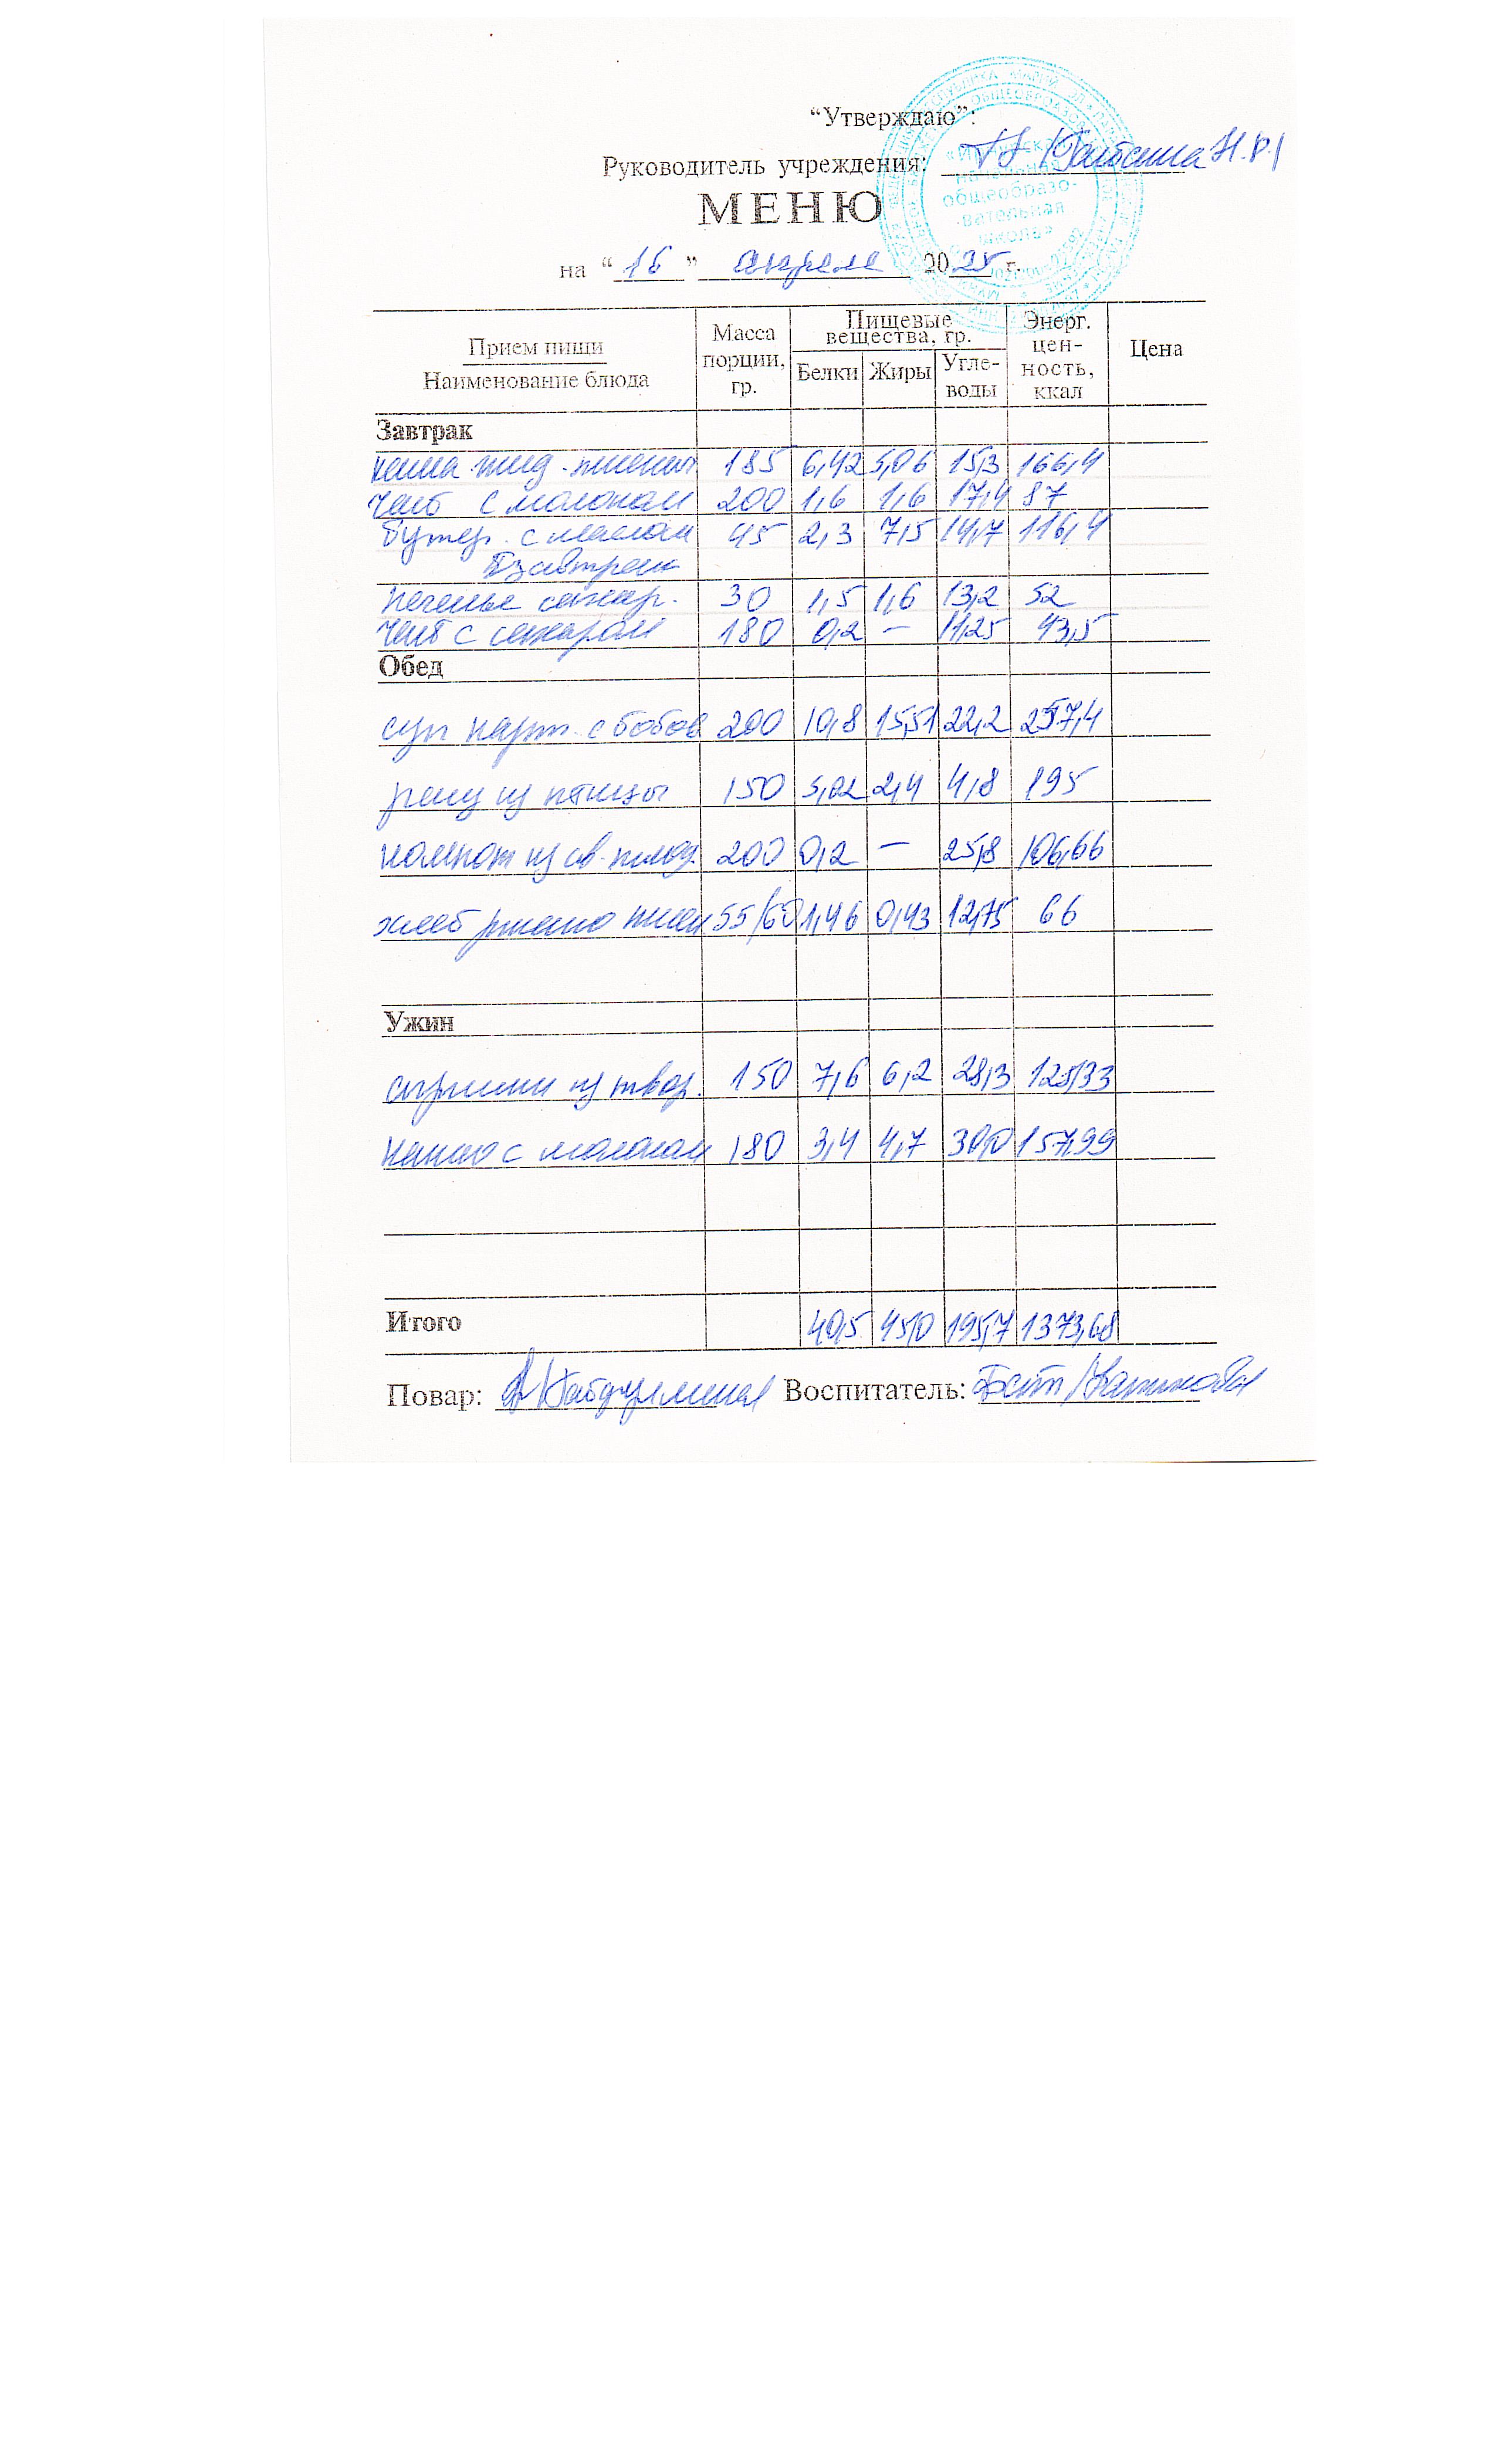 “Утверждаю”:
Руководитель учреждения:
МЕНЮ
на “16” апреля 2025 г.
Прием пищи Наименование блюда Масса порции, гр. Пищевые вещества, гр. Белки Жиры Угле-воды Энерг. цен-ность, ккал Цена
Завтрак
каша жид. пшенная 185 6,42 5,06 15,3 166,4
чай с молоком 200 1,6 1,6 17,4 87
бутер. с маслом 45 2,3 7,5 14,7 116,4
завтрак
печенье сахар. 30 1,5 1,6 13,2 52
чай с сахаром 180 0,2 — 11,25 43,5
Обед
суп карт. с бобов 200 10,8 15,51 22,2 257,4
рагу из птицы 150 5,02 2,4 4,8 195
компот из св. плод. 200 0,2 — 25,8 106,66
хлеб ржано пшен 55/60 1,46 0,43 12,75 66
Ужин
из твор. 150 7,6 6,2 28,3 125,33
какао с молоком 180 3,4 4,7 30,0 157,99
Итого 40,5 45,0 195,7 1373,68
Повар: Воспитатель:
общеобразо-
вательная
школа»